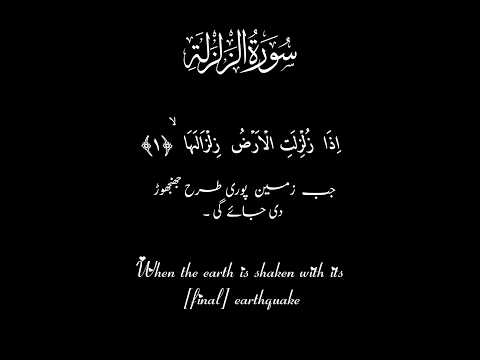 سُورَةُ الزَّلْزَلَةِ
اِذَا زُلْزِلَتِ الْاَرْضُ زِلْزَالَهَا ۙ ﴿۱﴾
جب زمین پوری طرح جھنجھوڑ
دی جائے گی ۔
When the earth is shaken with its
[final] earthquake